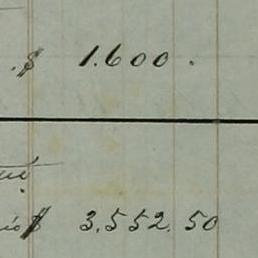 $ 1.600.
$ 3.552.50